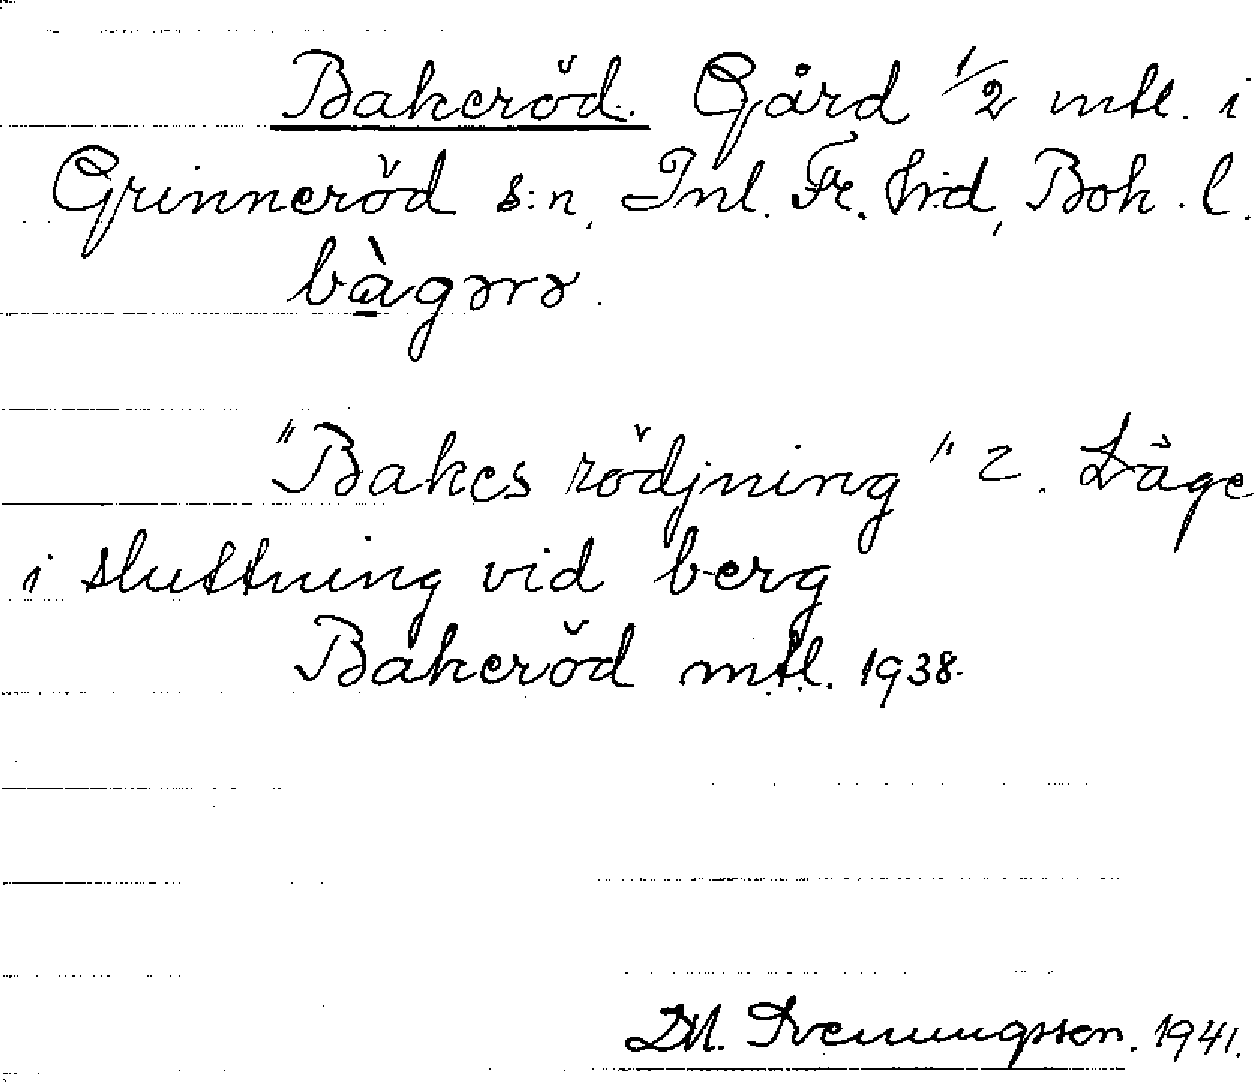 Bakeröd. Gård 1/2 mtl. i
Grinneröd s:n, Inl. Fr. hrd, Boh. l.
bàgərə.
"Bakes rödjning" ?. Läge
i sluttning vid berg
Bakeröd mtl. 1938.
DM. Svenungsson. 1941.